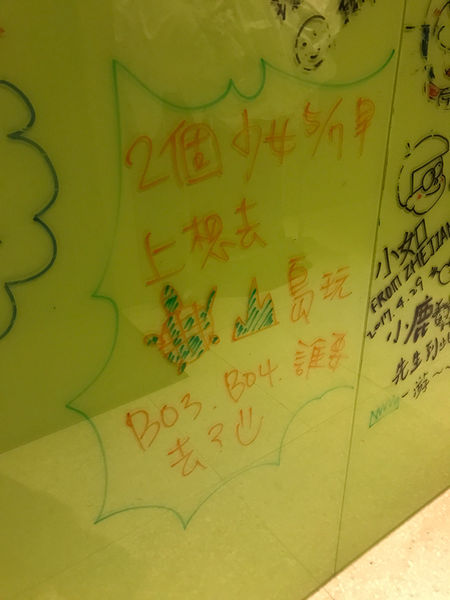 2個少女5/7早
上想去
島玩
B03. B04. 誰要
去?
小如
FROM ZHEJIAN
2017.4.29
小鹿
先生到此
一游~~